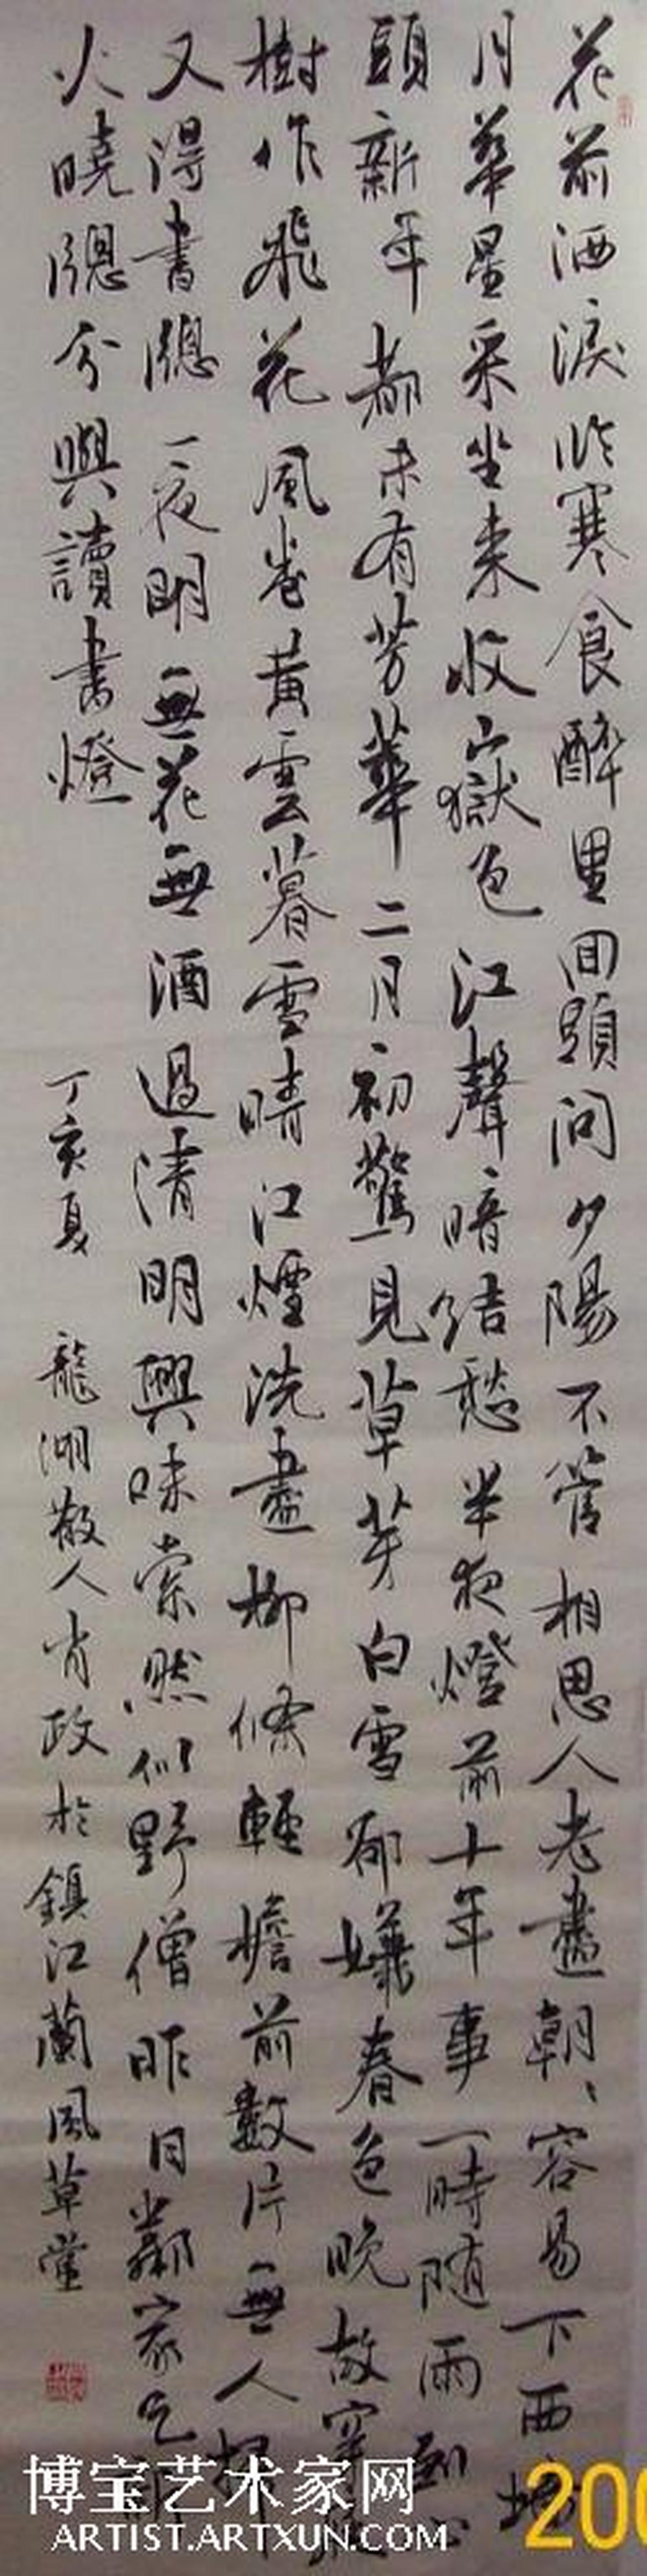 花前洒淚临寒食醉里回頭問夕陽不管相思人老盡朝〻容易下西墻
月華星采坐来收嶽色江聲暗结愁半夜燈前十年事一時随雨到心
頭新年都未有芳華二月初驚見草芽白雪却嫌春色晚故穿庭
樹作飛花風卷黄雲暮雪晴江煙洗盡柳條輕檐前數片無人掃
又得書牕一夜明無花無酒過清明興味索然似野僧昨日鄰家乞新
火曉牕分與讀書燈
丁亥夏 龍湖散人肖政於鎮江蘭風草堂
博宝艺术家网
ARTIST.ARTXUN.COM
200